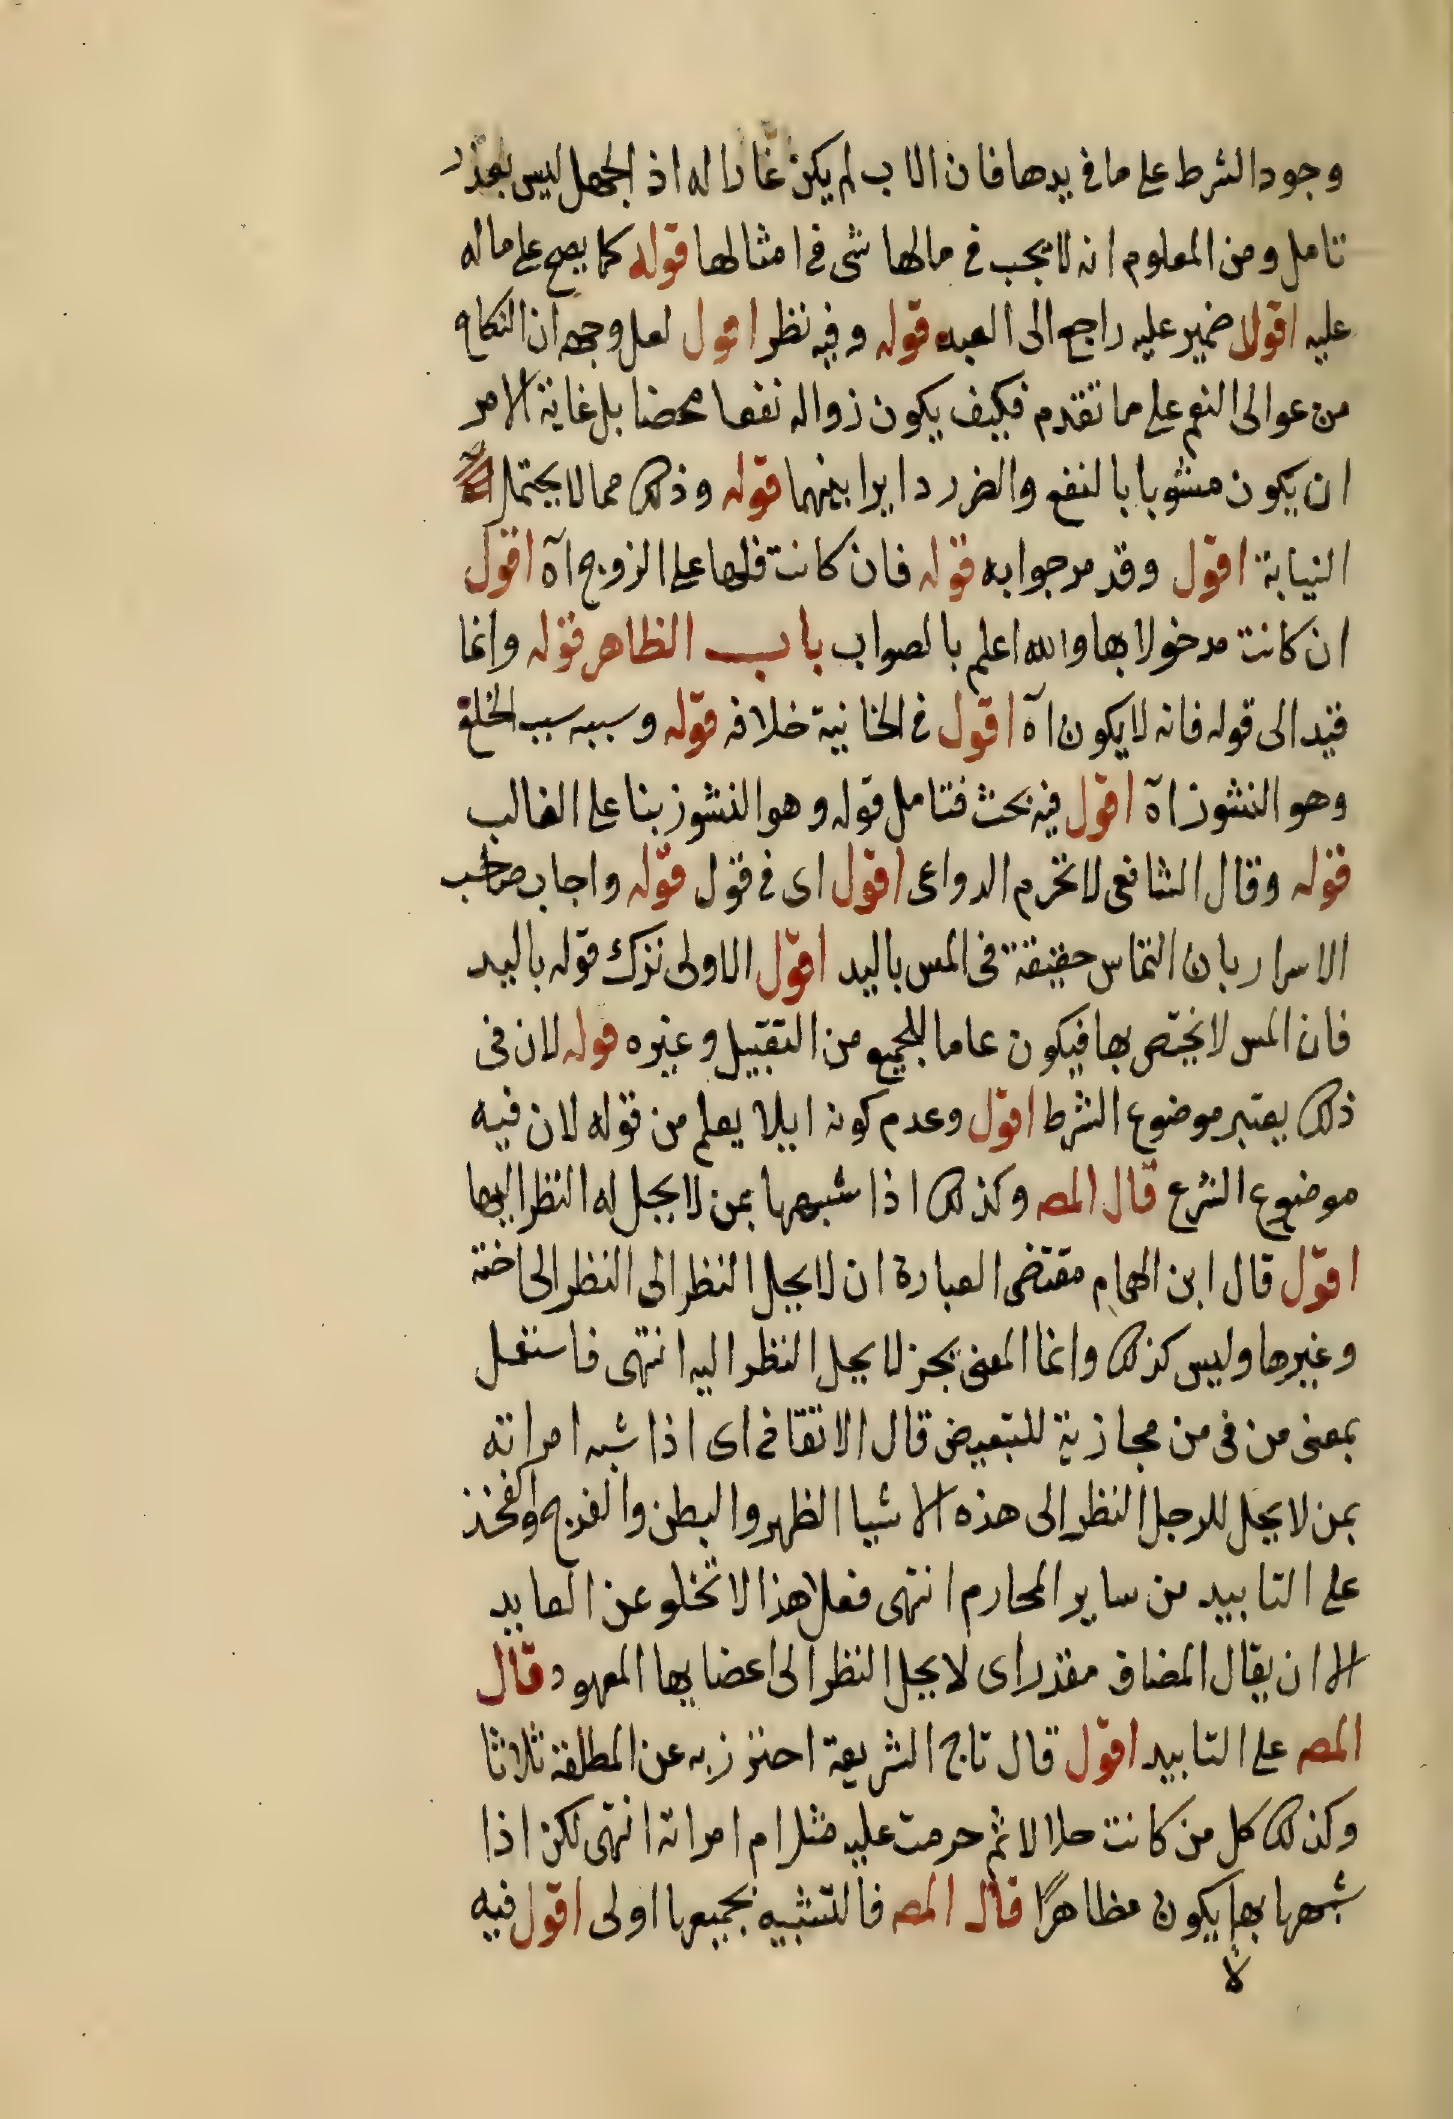 وجود الشرط على ما في يدها فان الاب لم يكن غارا له اذ الجهل ليس بعذر
تامل ومن المعلوم انه لا يجب في مالها شى في امثالها قوله كما يصح على ماله
عليه اقول ضمير عليه راجع الى العبد قوله وفيه نظر اقول لعل وجهه ان النكاح
من عوالى النعم على ما تقدم فكيف يكون زواله نفعا محضا بل غاية الامر
ان يكون مشوبا بالنفع والضرر دايرا بينهما قوله وذلك مما لا يحتمل
النيابة اقول وقد مر جوابه قوله فان كانت فلها على الزوج اه اقول
ان كانت مدخولا بها والله اعلم بالصواب باب الظاهر قوله وانما
قيد الى قوله فانه لا يكون اه اقول في الخانية خلافه قوله وسببه سبب الخلع
وهو النشوز اه اقول فيه بحث فتامل قوله وهو النشوز بنا على الغالب
قوله وقال الشافعى لا تحرم الدواعى اقول اى في قول قوله واجاب صاحب
الاسرار بان التماس حقيقة فى المس باليد اقول الاولى ترك قوله باليد
فان المس لا يختص بها فيكون عاما للجميع من التقبيل وغيره قوله لان فى
ذلك يعتبر موضوع الشرط اقول وعدم كونه ايلا يعلم من قوله لان فيه
موضوع الشرع قال المص وكذلك اذا شبهها بمن لا يحل له النظر اليها
اقول قال ابن الهمام مقتضى العبارة ان لا يحل النظر الى النظر الى اخته
وغيرها وليس كذلك وانما المعنى بجز لا يحل النظر اليه انتهى فاستعمل
بمعنى من فى من مجازية للتبعيض قال الاتقاني اى اذا شبه امراته
بمن لا يحل للرجل النظر الى هذه الاشيا الظهر والبطن والفرج والفخذ
على التابيد من ساير المحارم انتهى فعلى هذا لا تخلو عن العايد
الا ان يقال المضاف مقدر اى لا يحل النظر الى اعضايها المعهود قال
المص على التابيد اقول قال تاج الشريعة احترز به عن المطلقة ثلاثا
وكذلك كل من كانت حلالا ثم حرمت عليه مثل ام امراته انتهى لكن اذا
شبهها بها يكون مظاهرا قال المص فالتشبيه بجميعها اولى اقول فيه